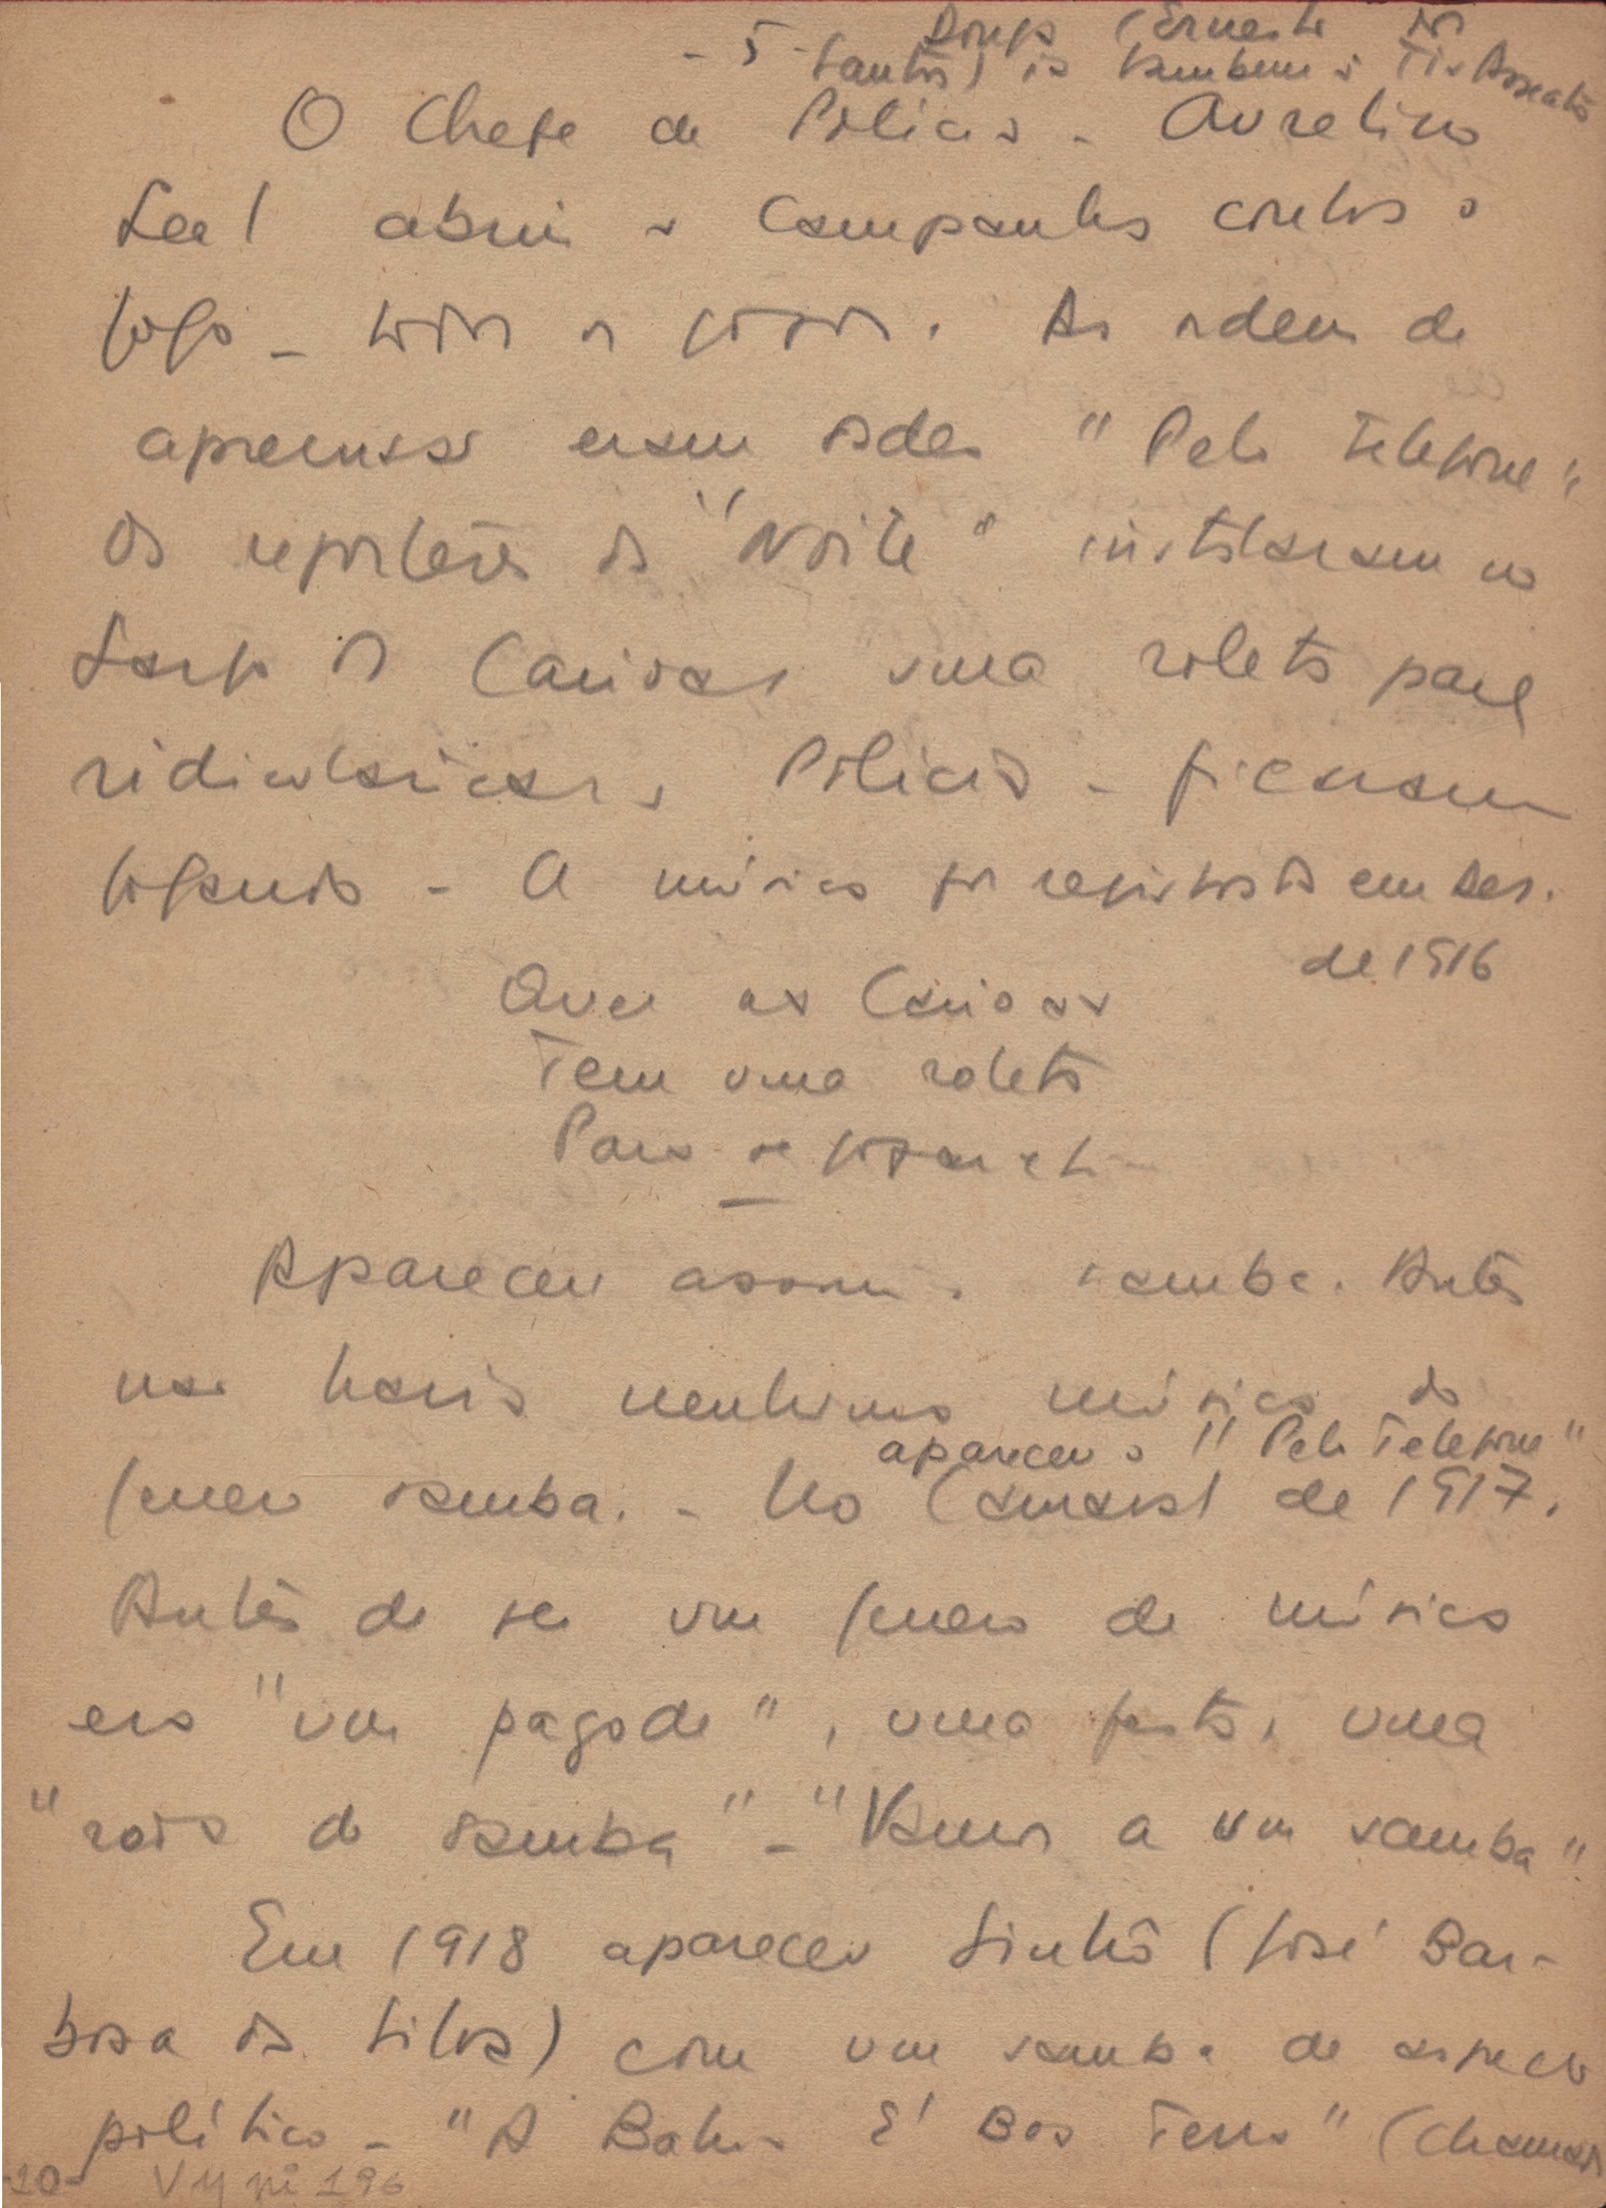 - 5 - Donga (Ernesto dos
Santos) ia também à Tia Asseata
O Chefe de Policia - Aurelino
Leal abriu a campanha contra o
jogo - todos os jogos. As ordens de
apreensão eram dadas "Pelo Telefone"
Os reporteres da "Noite" instalaram no
Largo da Carioca uma roleta para
ridicularizar a Policia - ficaram
jogando - A música foi registrada em Dez.
de 1916
Que na Carioca
Tem uma roleta
Para se jogar etc
Apareceu assim o samba. Antes
não havia nenhuma música do
apareceu o "Pelo Telefone"
genero samba. - No Carnaval de 1917.
Antes de ser um genero de música
era "um pagode", uma festa, uma
"roda de samba" - "Vamos a um samba"
Em 1918 apareceu Sinhô (José Bar-
bosa da Silva) com um samba de aspecto
político - "A Bahia É Boa Terra" (chamada
-20- V y nº 196